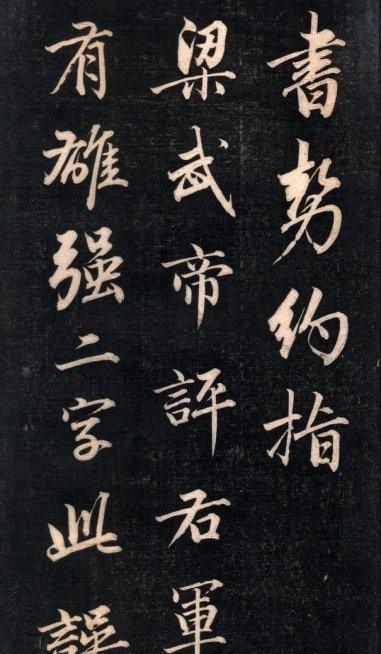 書勢約指
梁武帝評右軍
有雄强二字此誤